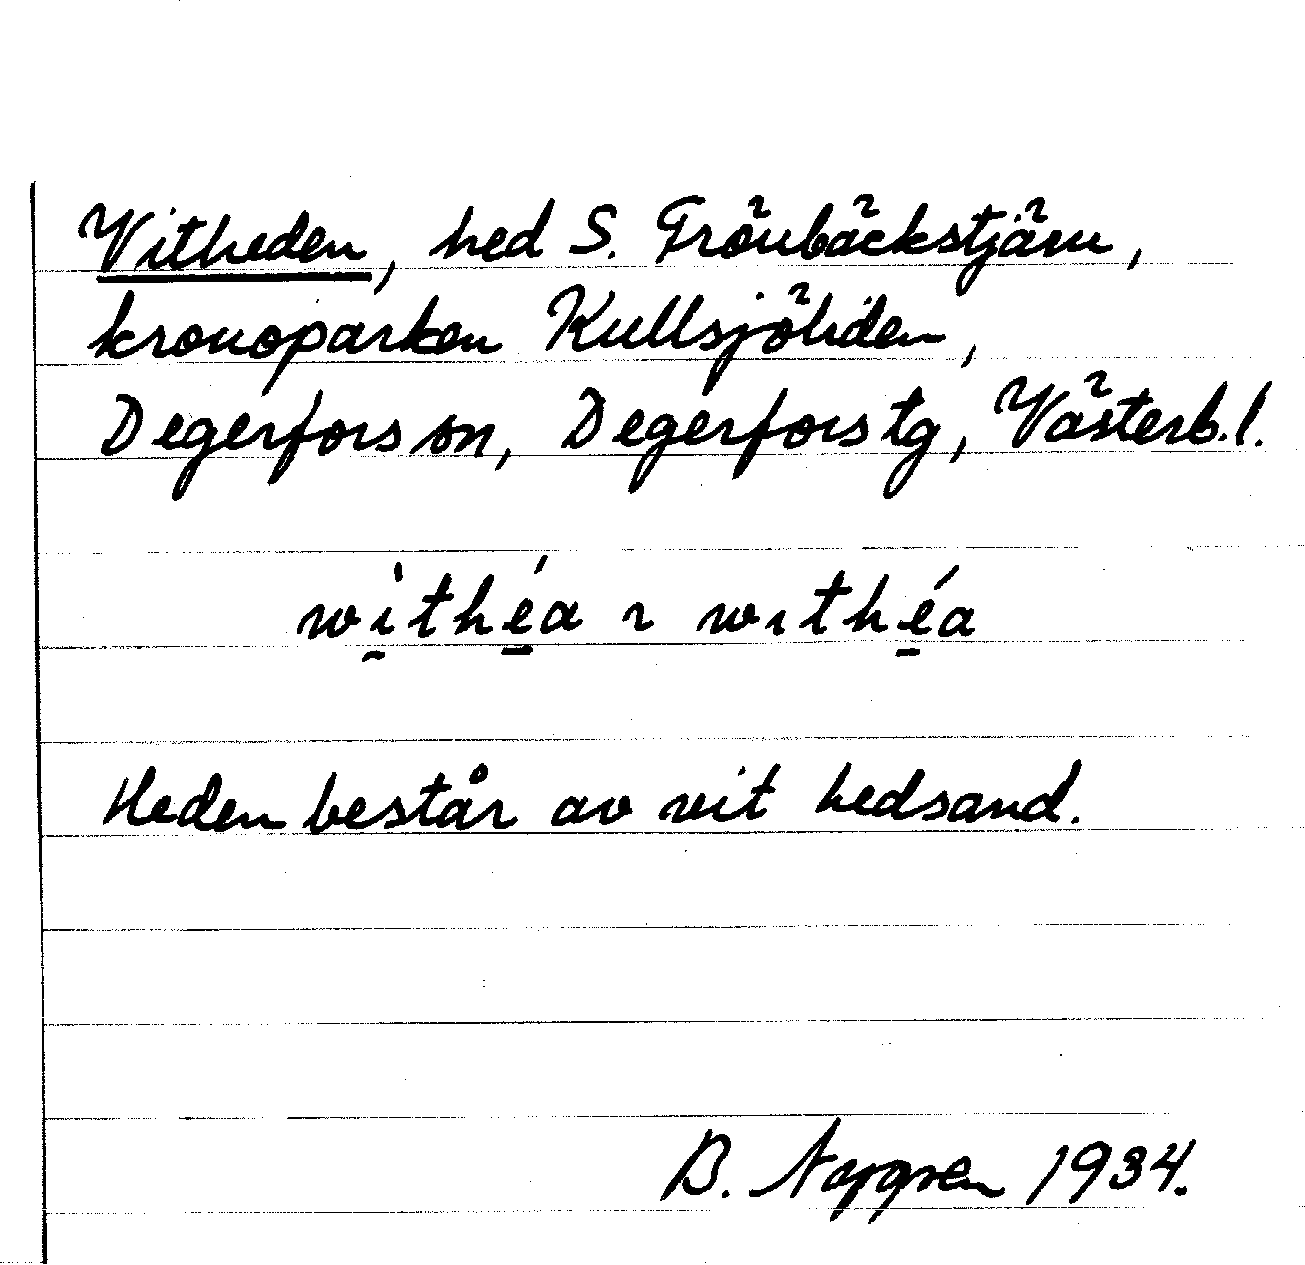 Vitheden, hed S. Grönbäckstjärn,
kronoparken Kullsjöliden,
Degerfors sn, Degerfors tg, Västerb.l.
wìthéa ı wıthéa
Heden består av vit hedsand.
B. 1934.